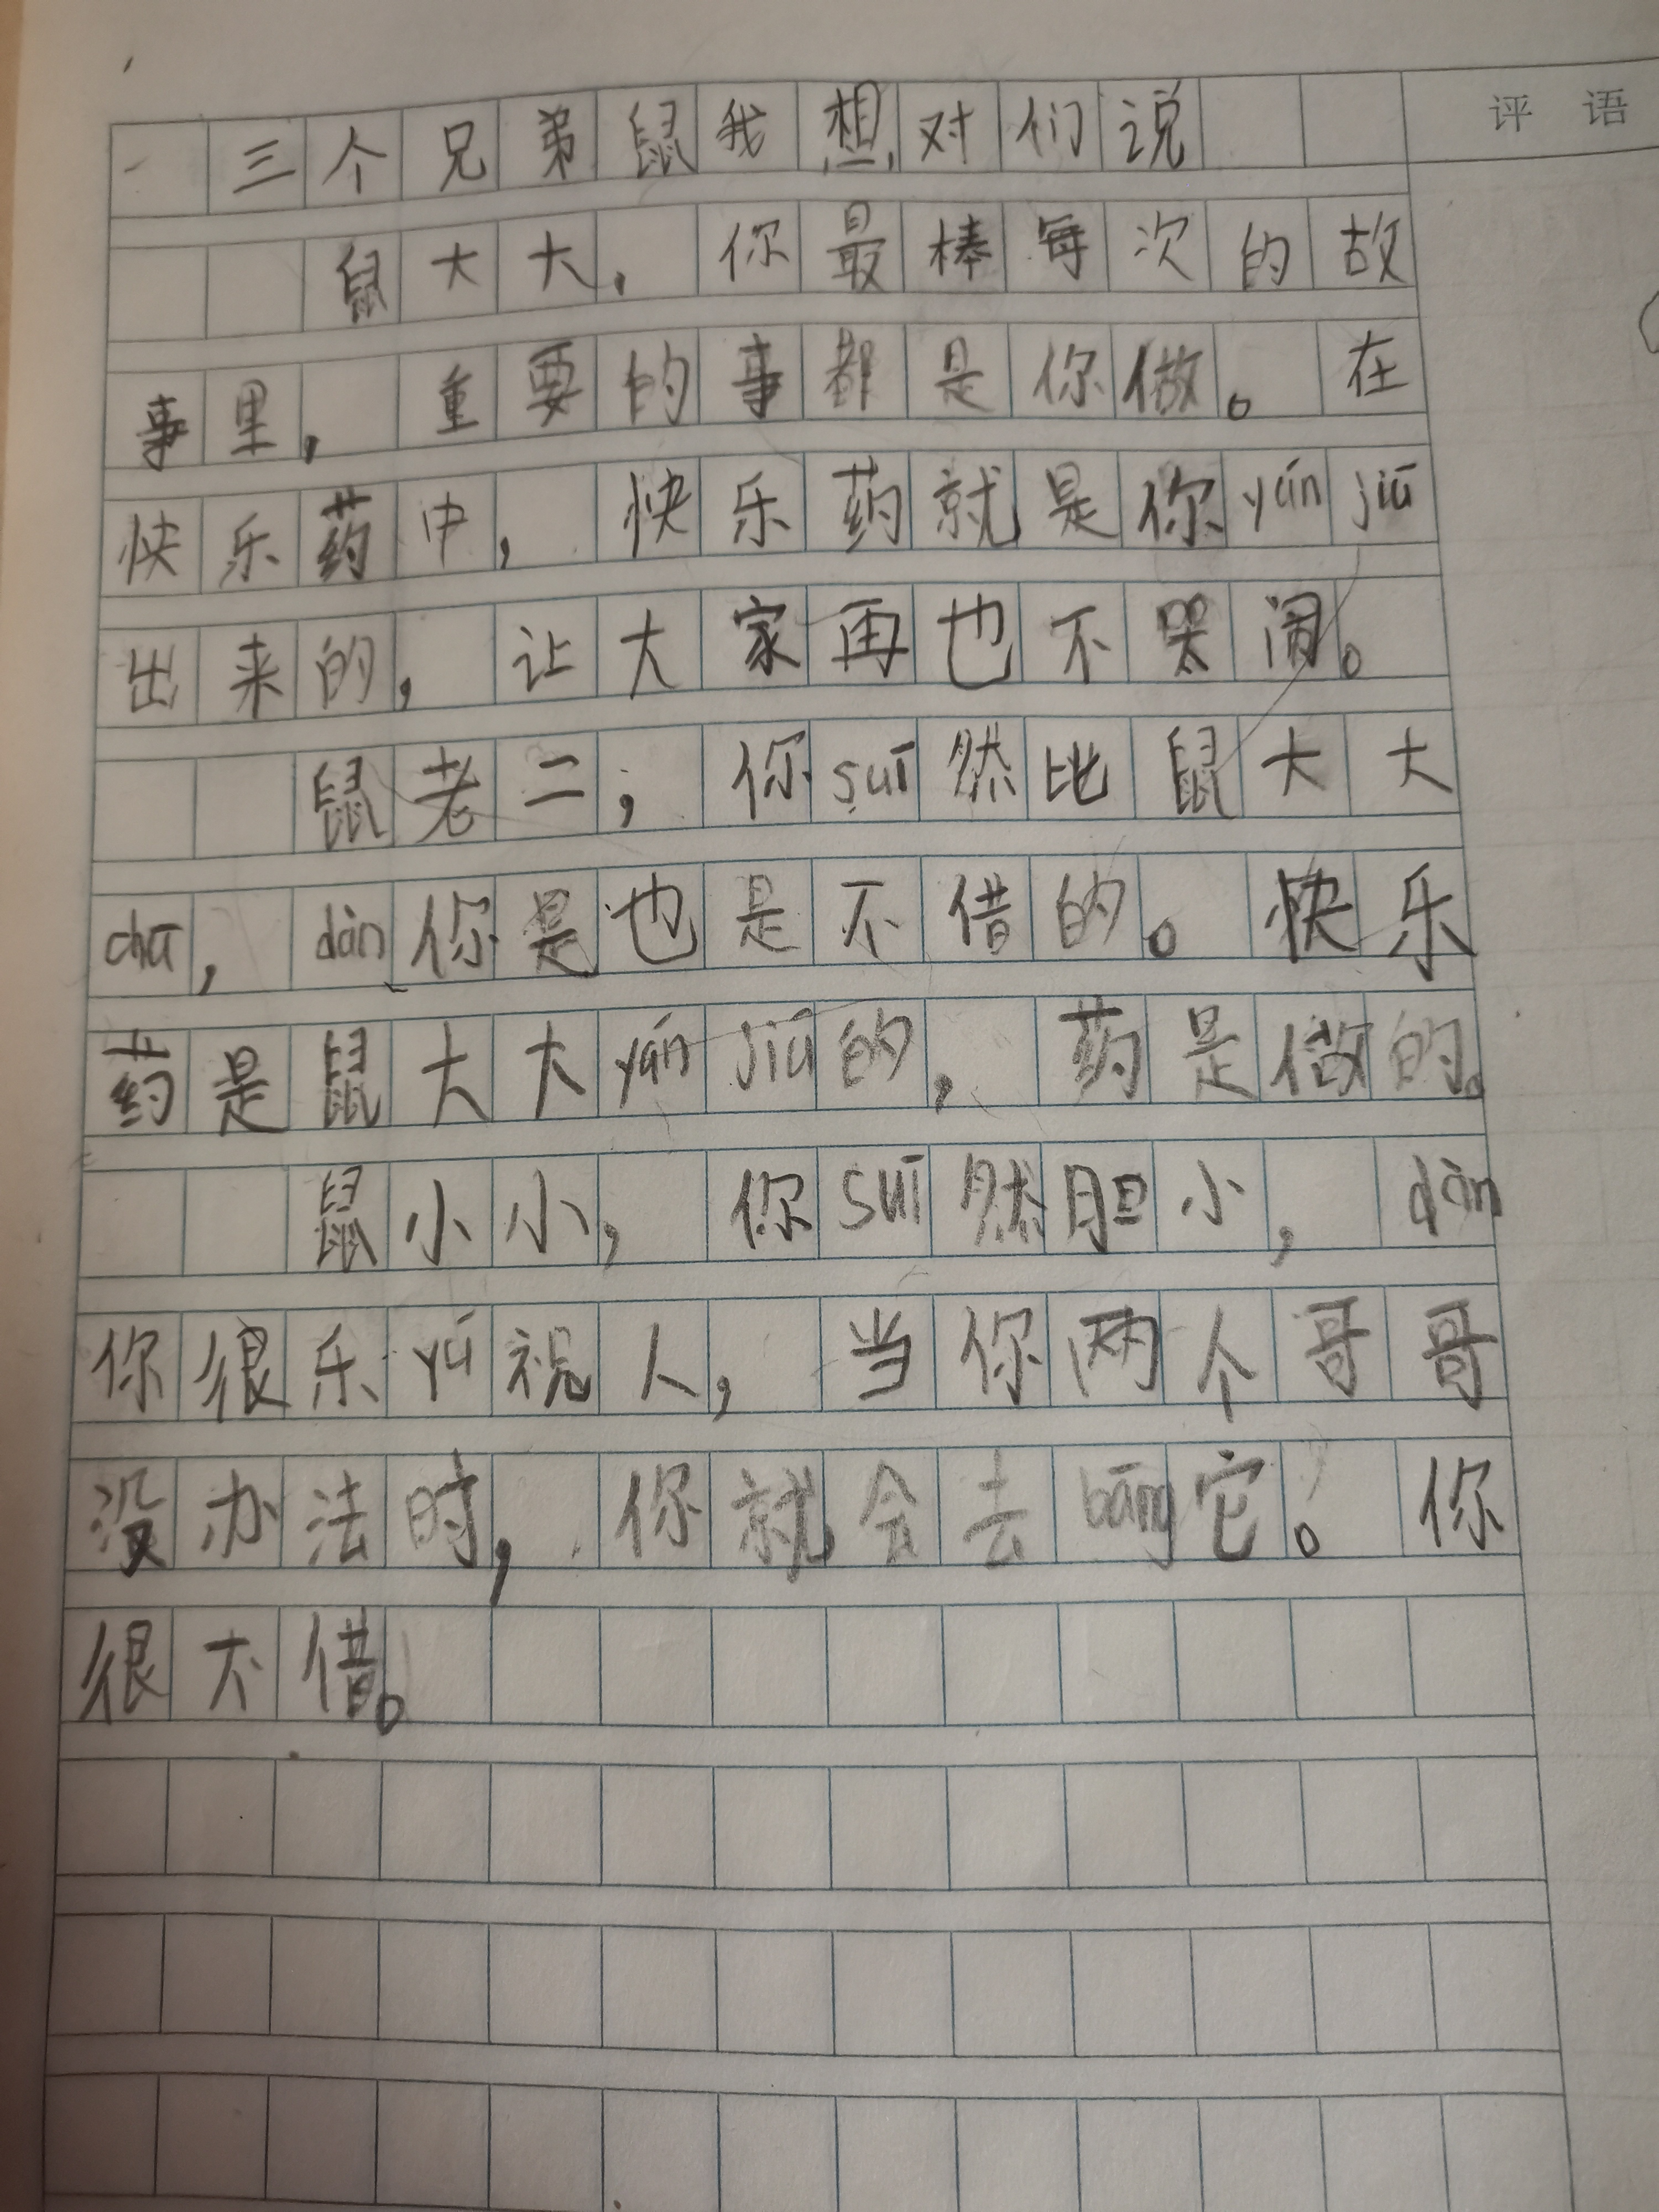 三个兄弟鼠我想对们说
评语
鼠大大，你最棒每次的故
事里，重要的事都是你做。在
快乐药中，快乐药就是你yán jiū
出来的，让大家再也不哭闹。
鼠老二；你suī然比鼠大大
chā，dàn你是也是不借的。快乐
药是鼠大大yán jiū的，药是做的。
鼠小小，你suī然胆小，dàn
你很乐yú祝人，当你两个哥哥
没办法时，你就会去bāng它。你
很不借。